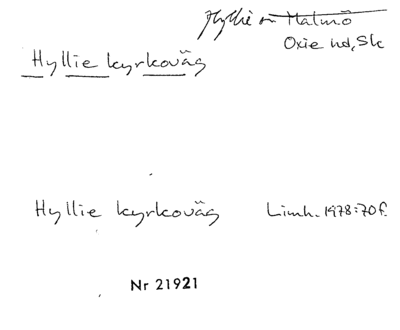 Hyllie sn Malmö
Oxie hd, Sk
Hyllie kyrkoväg
Hyllie kyrkoväg Limh. 1978:70f.
Nr 21921